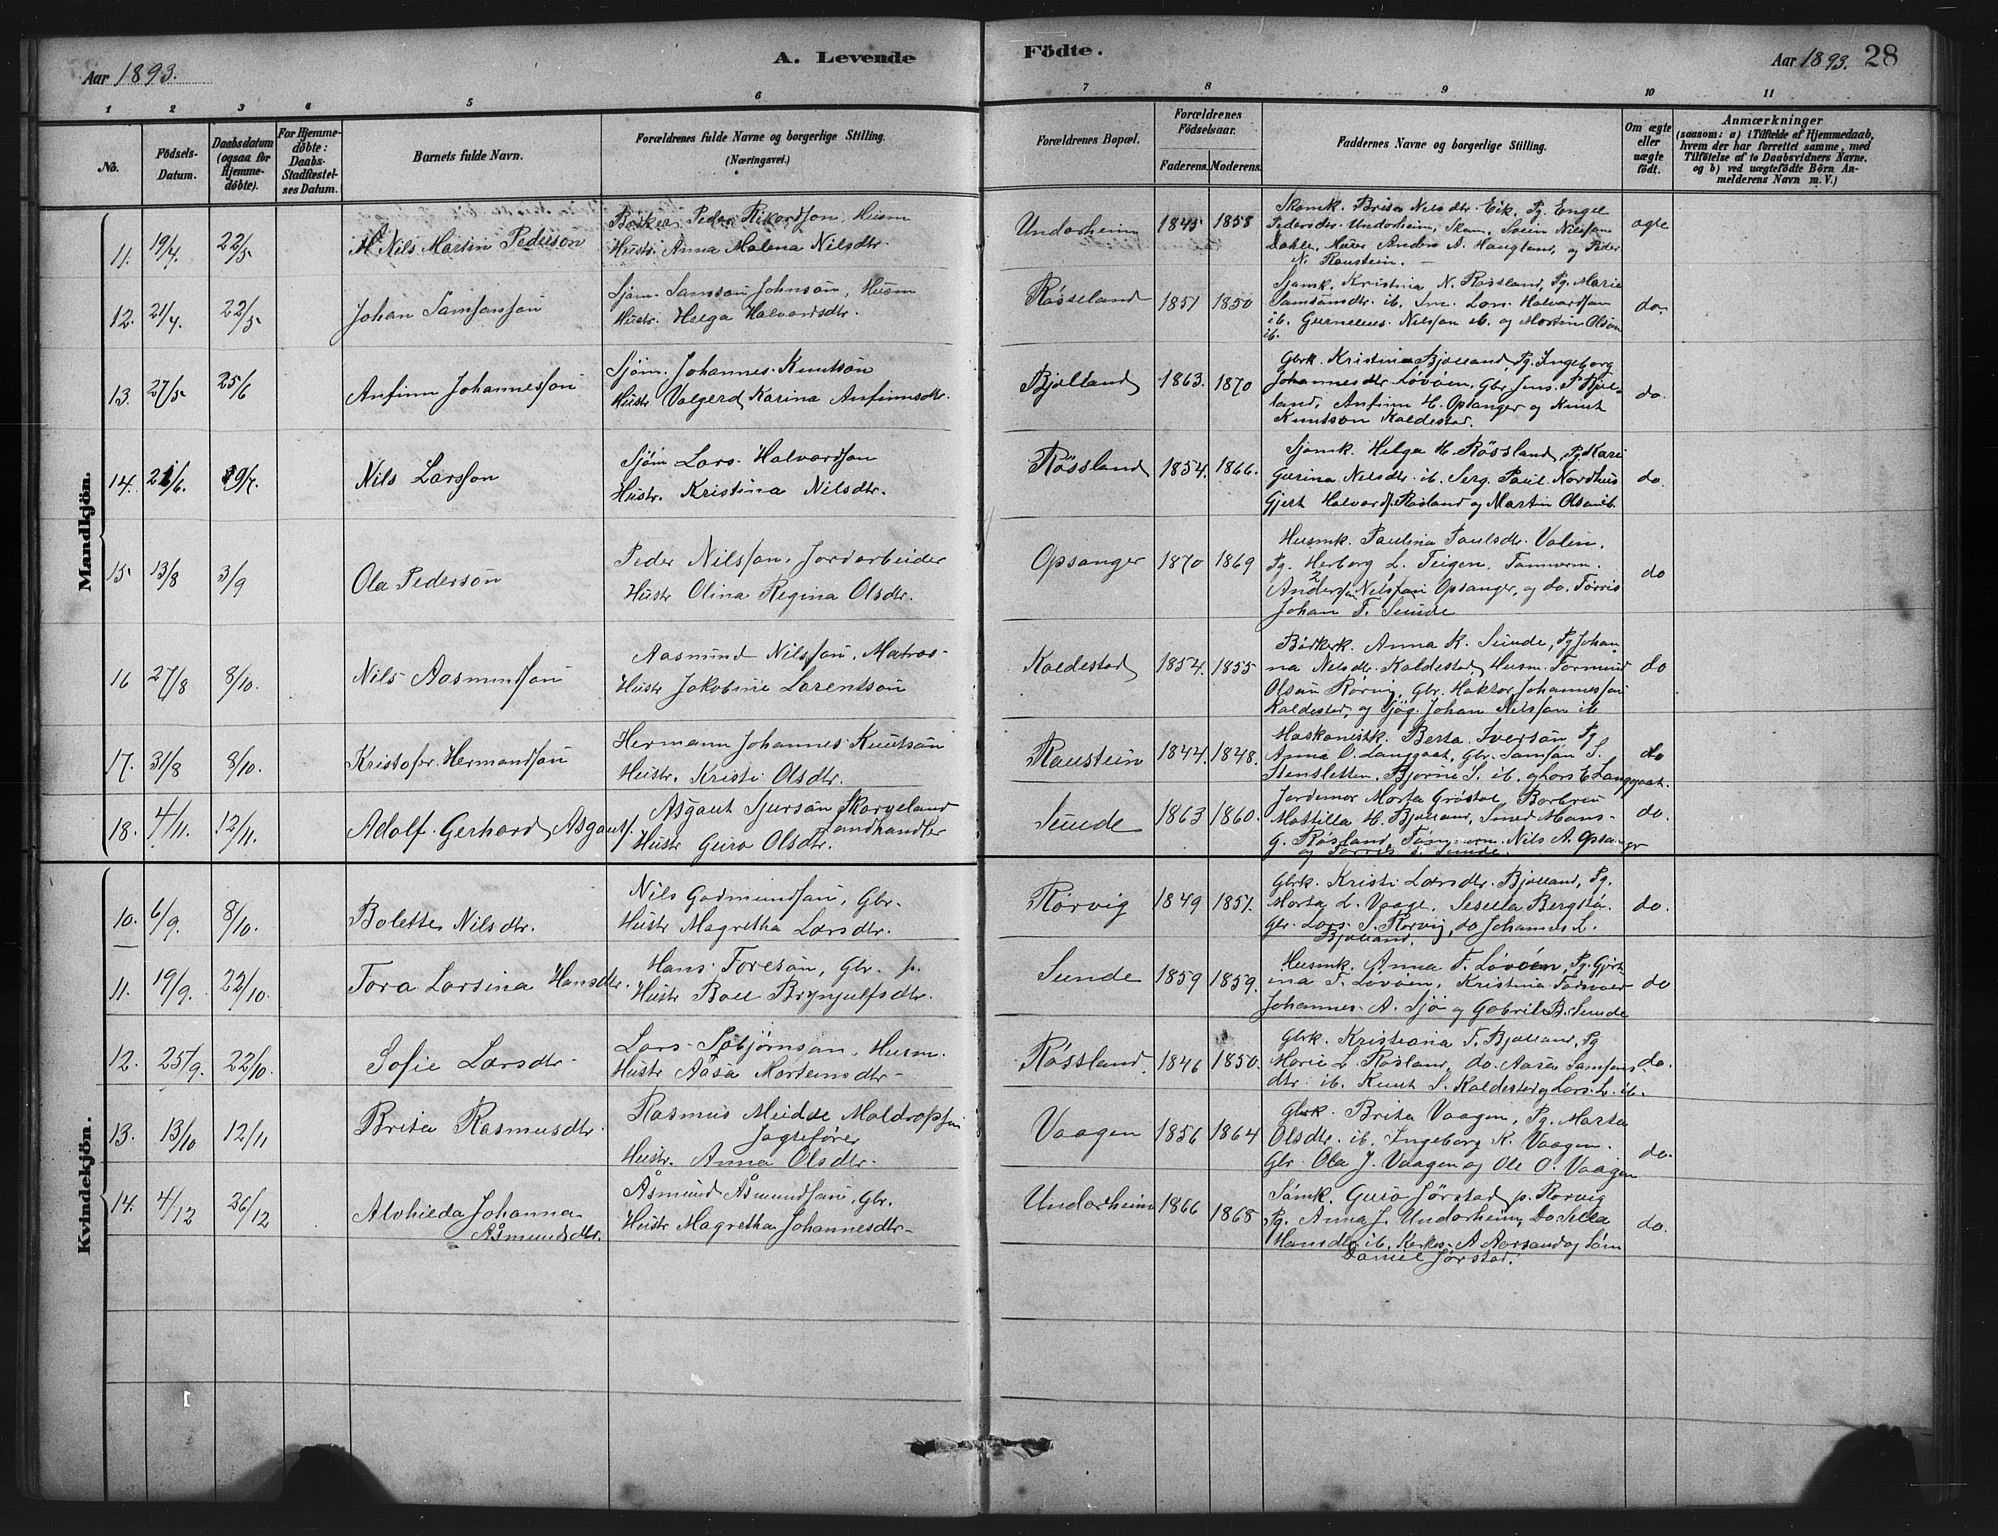 Aar 1893.
A. Levende Födte.
Aar 1893. 28
1 2 3 4 5 6 7 8 9 10 11
No.
Födsels-Datum.
Daabsdatum (ogsaa for Hjemme-döbte).
For Hjemme-döbte: Daabs-Stadfæstelses Datum.
Barnets fulde Navn.
Forældrenes fulde Navne og borgerlige Stilling. (Næringsvei.)
Forældrenes Bopæl.
Forældrenes Födselsaar.
Faderens. Moderens.
Faddernes Navne og borgerlige Stilling.
Om ægte eller uægte födt.
Anmærkninger
(saasom: a) i Tilfælde af Hjemmedaab,
hvem der har forrettet samme, med
Tilföielse af to Daabsvidners Navne.
og b) ved uægtefödte Börn An-
melderens Navn m. V.)
Mandkjön.
11. 19/4. 22/5. Nils Martin Pederson
Peder Rikardson, Husm
Hustr. Anna Malena Nilsdtr.
Undarheim 1845 1858
Brita Nilsdtr. Eik, Pg. Engel
Pedersdtr. Undarheim, Svein Nilsson
Dahle, Anders A. Haugland, og Peder
N. Raustein.
ægte
12. 21/4. 22/5 Johan Samsonson
Sjöm. Samson Johnson, Husm
Hustr. Helga Halvardsdtr.
Røsseland 1851 1850
Sjømk. Kristina N. Røssland, Pg. Maria
Samsonsdtr. ib. Lars Halvardson
ib. Nilsson ib. og Martin Olson
ib.
do.
13. 27/5 25/6 Anfinn Johannesson
Sjöm. Johannes Knutson
Hustr Valgerd Karina Anfinnsdtr.
Bjelland 1863. 1870
Gbrk. Kristina Bjelland, Pg. Ingeborg
Johannesdtr. Løvøen, Gbr. Jens
land, Anfinn H. Opsanger og Knut
Knutson Kaldestad.
do.
14. 21/6. 9/7. Nils Larsson
Sjöm Lars Halvardson
Hustr. Kristina Nilsdtr.
Røssland 1854. 1866.
Sjømk. Helga H. Røssland, Pg. Kari
Gurina Nilsdtr. ib. Serg. Paul Nordhus
Gjert Halvards. Røsland og Martin Olson ib.
do.
15 13/8 3/9 Ola Pederson
Peder Nilsson, Jordarbeider
Hustr Olina Regina Olsdtr.
Opsanger 1870 1869
Husmk. Paulina Paulsdtr. Valen,
Pg. Herborg L. Teigen,
Nilsson Opsanger, og do. Torris
Johan T. Sunde
do
16 27/8 8/10. Nils Aasmundson
Aasmund Nilsson, Matros
Hustr Jakobine Larentson
Kaldestad 1854. 1855
Bødkerk. Anna K. Sunde, Pg Johan
na Nilsdtr. Kaldestad, Husm. Tormund
Olson Rørvig, Gbr. Haktor Johannesson
Kaldestad, og Johan Nilsson ib
do
17. 31/8 8/10. Kristofer Hermanson
Hermann Johannes Knutson
Hustr. Kristi Olsdtr.
Raustein 1844. 1848.
Maskanistk. Berta Iverson Pg
Anna O. Langgaat, Gbr. Samson S.
Stensletten, Bjorne S. ib. og Lars E Langgaat.
do
18. 4/11. 12/11. Adolf Gerhard Asgauts.
Asgaut Sjurson Skorveland
Landhandler
Hustr Guro Olsdtr.
Sunde 1863 1860.
Jordemor Marta Grøstøl,
Matilla H. Bjelland, Smed Hans
G. Røsland, Nils A. Opsanger
og Torris T. Sunde.
do.
Kvindekjön.
10. 6/9. 8/10. Bolette Nilsdtr.
Nils Gudmundson, Gbr.
Hustr Magretha Larsdtr.
Rørvig 1849 1857.
Gbrk. Kristi Larsdtr. Bjelland, Pg.
Marta L. Vaage,
Gbr. Lars S. Rørvig, do Johannes L.
Bjelland.
do.
11. 19/9. 22/10. Tora Larsina Hansdtr.
Hans Toreson, Gbr. p.
Hustr Boel Brynjulfsdtr.
Sunde 1859 1859.
Husmk. Anna T. Løvøen, Pg. Gjert
ina T. Løvøen, Kristina
Johannes A. Sjo og Gabriel B. Sunde
do
12. 25/9. 22/10. Sofie Larsdtr
Lars Sebjørnson, Husm.
Hustr Aasa Martensdtr
Røssland. 1846 1850.
Gbrk. Kristiana T. Bjelland, Pg
Marie L. Røsland, do Aasa Samsons
dtr. ib. Knut S. Kaldestad og Lars L. ib.
do.
13. 13/10 12/11 Brita Rasmusdtr.
Rasmus Meidel Maldropson
Jagtefører
Hustr. Anna Olsdtr.
Vaagen 1856 1864
Gbrk. Brita Vaagen, Pg. Marta
Olsdtr. ib. Ingeborg K. Vaagen.
Gbr. Ola J. Vaagen og Ole O. Vaagen
do.
14. 4/12 26/12 Alvhilda Johanna
Åsmundsdtr.
Åsmund Åsmundson, Gbr.
Hustr Magretha Johannesdtr
Undarheim 1866 1868
Guro Jørstad p. Rørvig
Pg. Anna J. Undarheim, Do Sella
Hansdtr. ib. A Aarsand og Søm
Daniel Jørstad.
do.